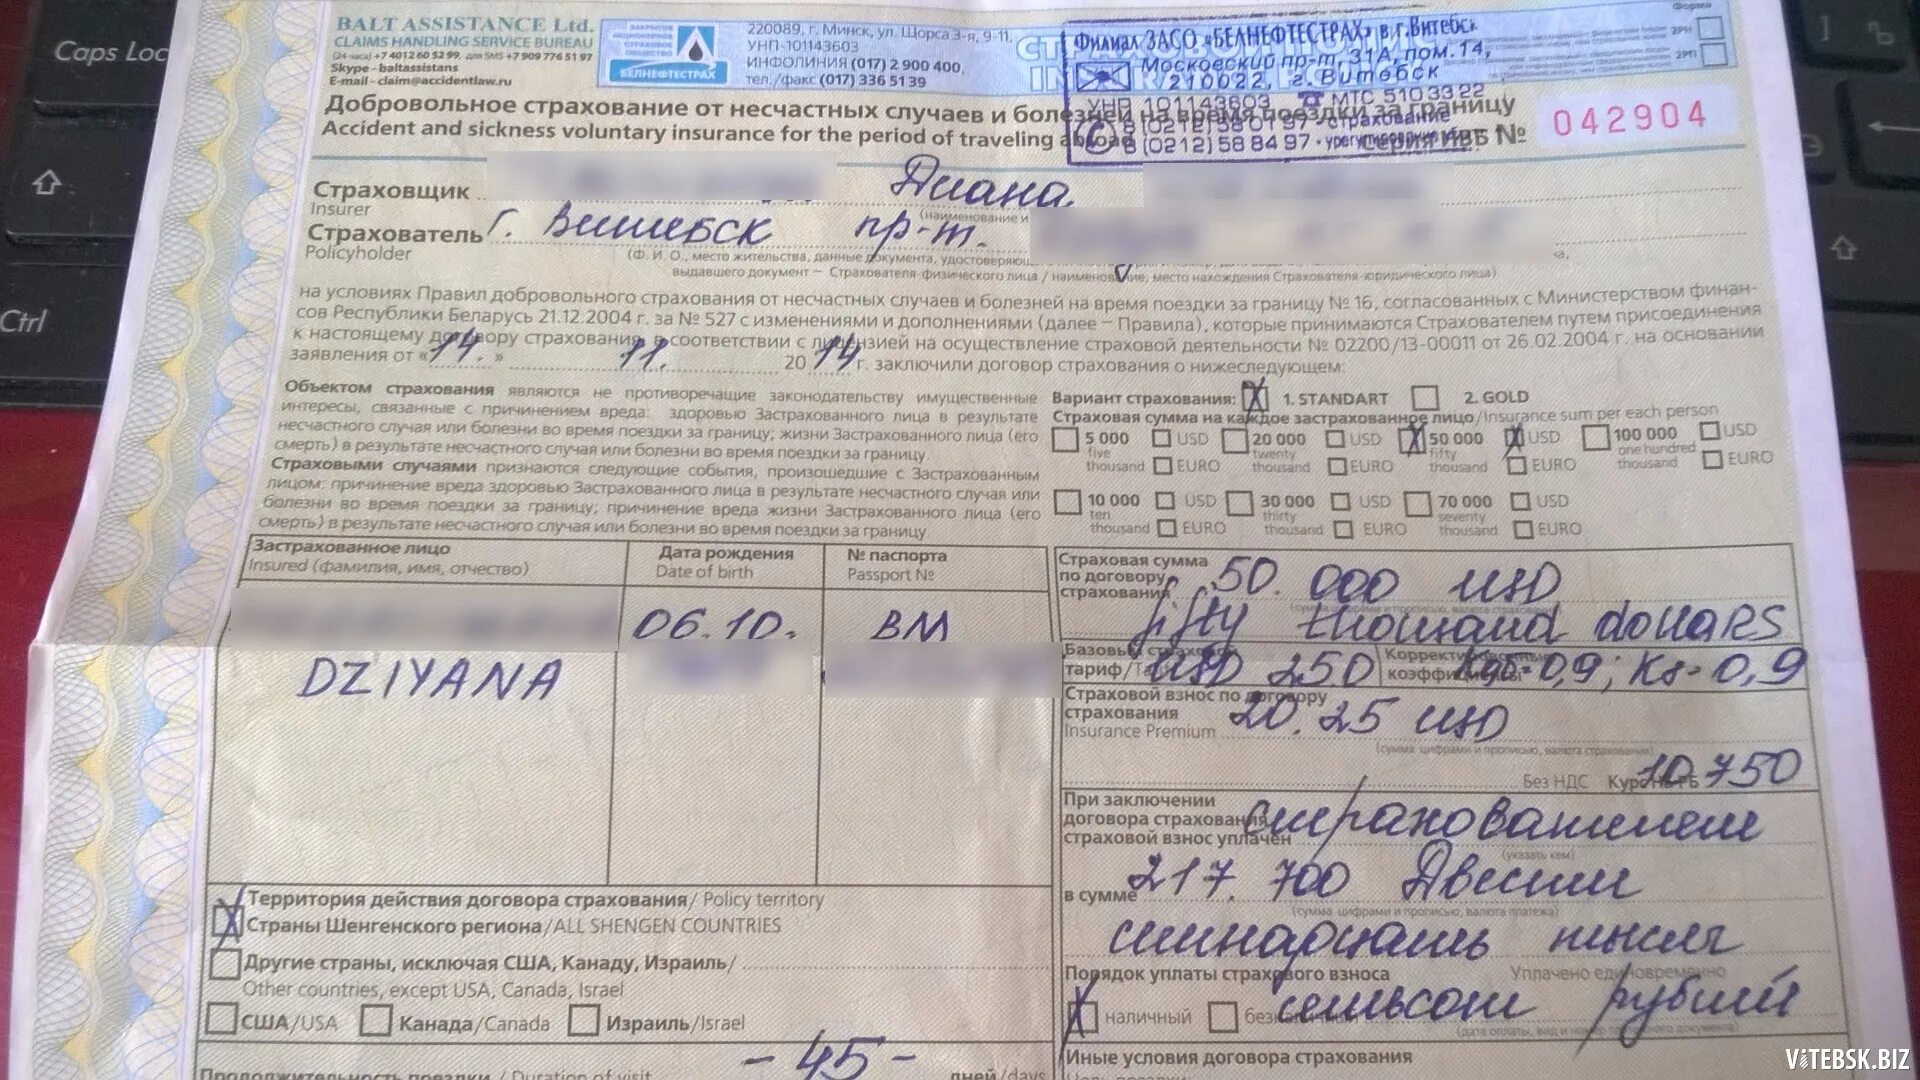 BALT ASSISTANCE Ltd.
CLAIMS HANDLING SERVICE BUREAU
(24 часа) +7 4012 60 52 99, для SMS +7 909 776 51 97
Skype - baltassistans
E-mail - claim@accidentlaw.ru
БЕЛНЕФТЕСТРАХ
220089, г. Минск, ул. Щорса 3-я, 9-11,
УНП-101143603
ИНФОЛИНИЯ (017) 2 900 400,
тел./факс (017) 336 51 39
Филиал ЗАСО «БЕЛНЕФТЕСТРАХ» в г. Витебск
Московский пр-т, 31А, пом. 14,
210022, г. Витебск
УНП 101143603 МТС 510 33 22
8 (0212) 58 01 97 - страхование
8 (0212) 58 84 97 -
Форма
2РН
2РП
Добровольное страхование от несчастных случаев и болезней на время поездки за границу
Accident and sickness voluntary insurance for the period of traveling abroad
Серия ИВБ № 042904
Страховщик Диана
Insurer
Страхователь г. Витебск пр-т.
Policyholder
(Ф. И. О., место жительства, данные документа,
выдавшего документ — Страхователя-физического лица / наименование, место нахождения Страхователя-юридического лица)
на условиях Правил добровольного страхования от несчастных случаев и болезней на время поездки за границу № 16, согласованных с Министерством финан-
сов Республики Беларусь 21.12.2004 г. за № 527 с изменениями и дополнениями (далее — Правила), которые принимаются Страхователем путем присоединения
к настоящему договору страхования, в соответствии с лицензией на осуществление страховой деятельности № 02200/13-00011 от 26.02.2004 г. на основании
заявления от «14.» 11. 2014 г. заключили договор страхования о нижеследующем:
Объектом страхования являются не противоречащие законодательству имущественные
интересы, связанные с причинением вреда: здоровью Застрахованного лица в результате
несчастного случая или болезни во время поездки за границу; жизни Застрахованного лица (его
смерть) в результате несчастного случая или болезни во время поездки за границу.
Страховыми случаями признаются следующие события, произошедшие с Застрахованным
лицом: причинение вреда здоровью Застрахованного лица в результате несчастного случая или
болезни во время поездки за границу; причинение вреда жизни Застрахованного лица (его
смерть) в результате несчастного случая или болезни во время поездки за границу.
Вариант страхования: X 1. STANDART 2. GOLD
Страховая сумма на каждое застрахованное лицо/Insurance sum per each person
5 000 USD 20 000 USD X 50 000 X USD 100 000 USD
five thousand EURO twenty thousand EURO fifty thousand EURO one hundred thousand EURO
10 000 USD 30 000 USD 70 000 USD
ten thousand EURO thirty thousand EURO seventy thousand EURO
Застрахованное лицо
Insured (фамилия, имя, отчество)
Дата рождения
Date of birth
№ паспорта
Passport №
06.10. BM
DZIYANA
Страховая сумма
по договору
страхования
50.000 USD
fifty thousand dollars
Базовый страховой
тариф/ USD 250
Корректировочные
коэффициенты =0,9; Ks=0,9
Страховой взнос по договору
страхования
Insurance Premium
20.25 USD
(сумма цифрами и прописью, валюта страхования)
Без НДС Курс НБ РБ 10750
При заключении
договора страхования
страховой взнос уплачен
страхователем
(указать кем)
в сумме 217.700 Двести
(сумма цифрами и прописью, валюта платежа)
семнадцать тысяч
Порядок уплаты страхового взноса Уплачено единовременно
семьсот рублей
X наличный
Иные условия договора страхования
Территория действия договора страхования/ Policy territory
X Страны Шенгенского региона/ALL SHENGEN COUNTRIES
Другие страны, исключая США, Канаду, Израиль/
Other countries, except USA, Canada, Israel
США/USA Канада/Canada Израиль/Israel
Продолжительность поездки / Duration of visit - 45 - дней/days
Caps Loc
Ctrl
ViTEBSK.BIZ